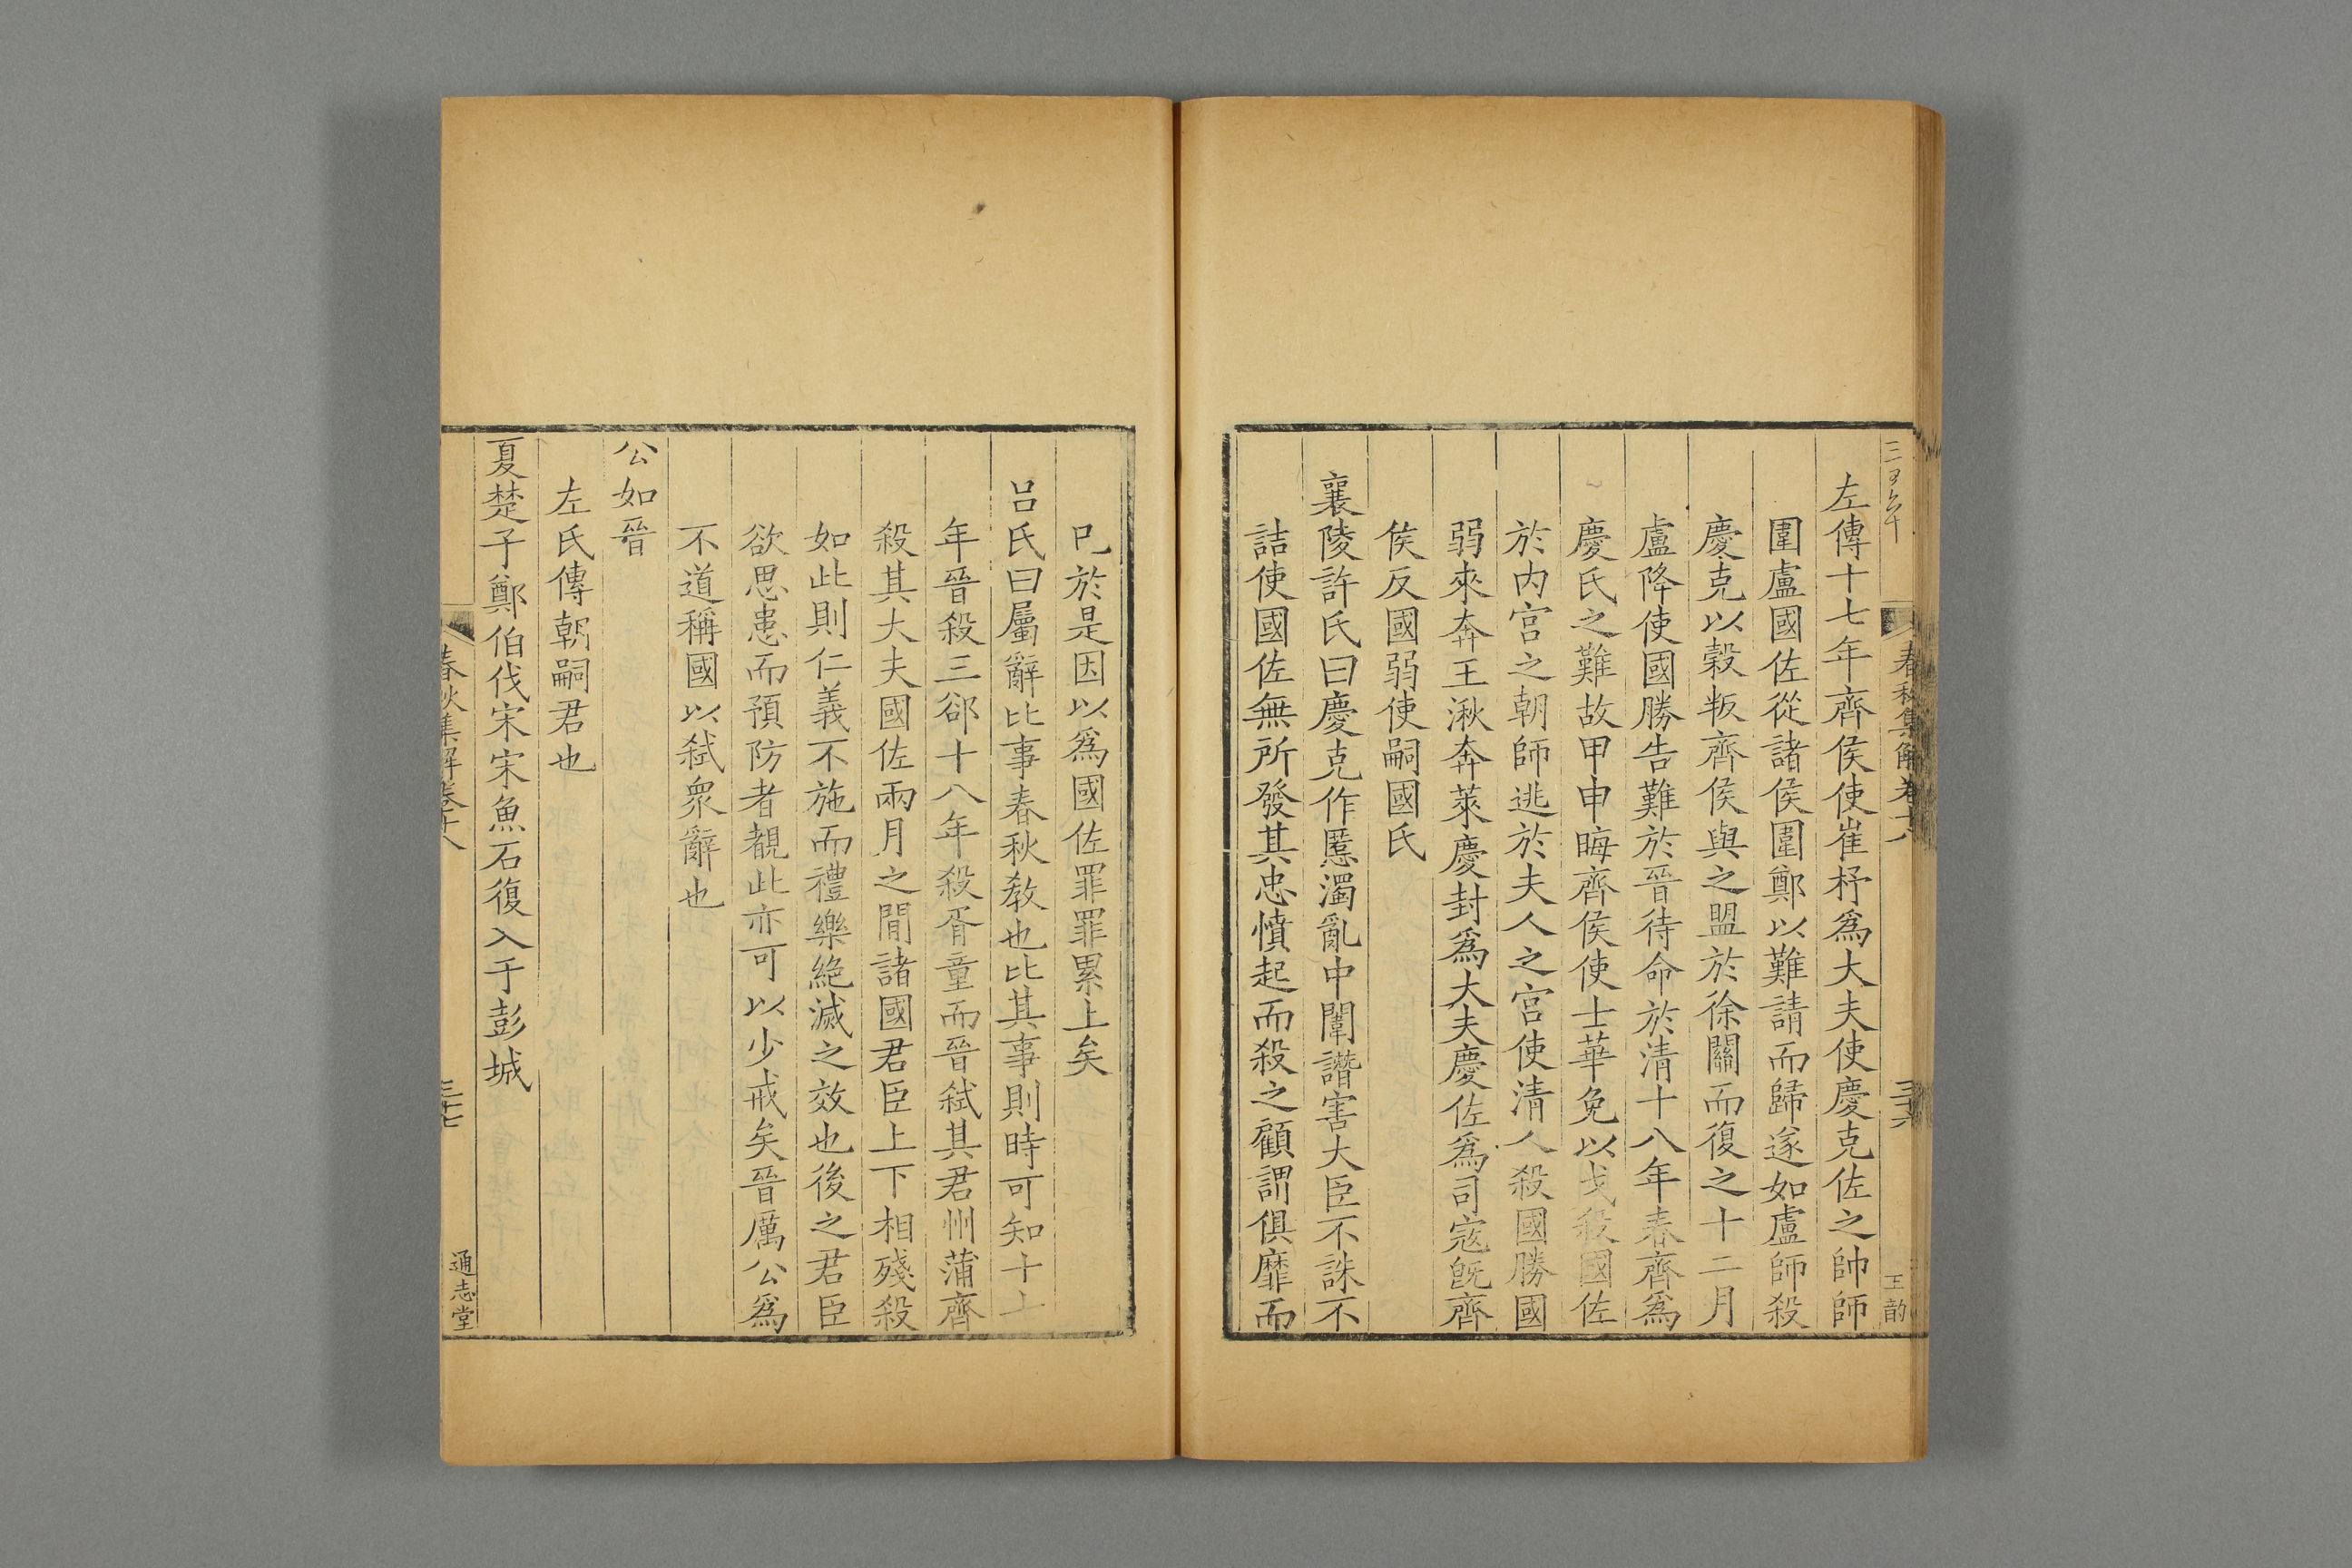 春秋集解卷十八
三十六
王韵
左傳十七年齊侯使崔杼爲大夫使慶克佐之帥師
圍盧國佐從諸侯圍鄭以難請而歸遂如盧師殺
慶克以榖叛齊侯與之盟於徐關而復之十二月
盧降使國勝告難於晉待命於清十八年春齊爲
慶氏之難故甲申晦齊侯使士華免以戈殺國佐
於内宫之朝師逃於夫人之宫使清人殺國勝國
弱來奔王湫奔萊慶封爲大夫慶佐爲司寇旣齊
侯反國弱使嗣國氏
襄陵許氏曰慶克作慝濁亂中闈譖害大臣不誅不
詰使國佐無所發其忠憤起而殺之顧謂俱靡而
已於是因以爲國佐罪罪累上矣
吕氏曰屬辭比事春秋敎也比其事則時可知十七
年晉殺三郤十八年殺胥童而晉弑其君州蒲齊
殺其大夫國佐兩月之閒諸國君臣上下相殘殺
如此則仁義不施而禮樂絶滅之效也後之君臣
欲思患而預防者覩此亦可以少戒矣晉厲公爲
不道稱國以弑衆辭也
公如晉
左氏傳朝嗣君也
夏楚子鄭伯伐宋宋魚石復入于彭城
春秋集解卷十八
三十七
通志堂